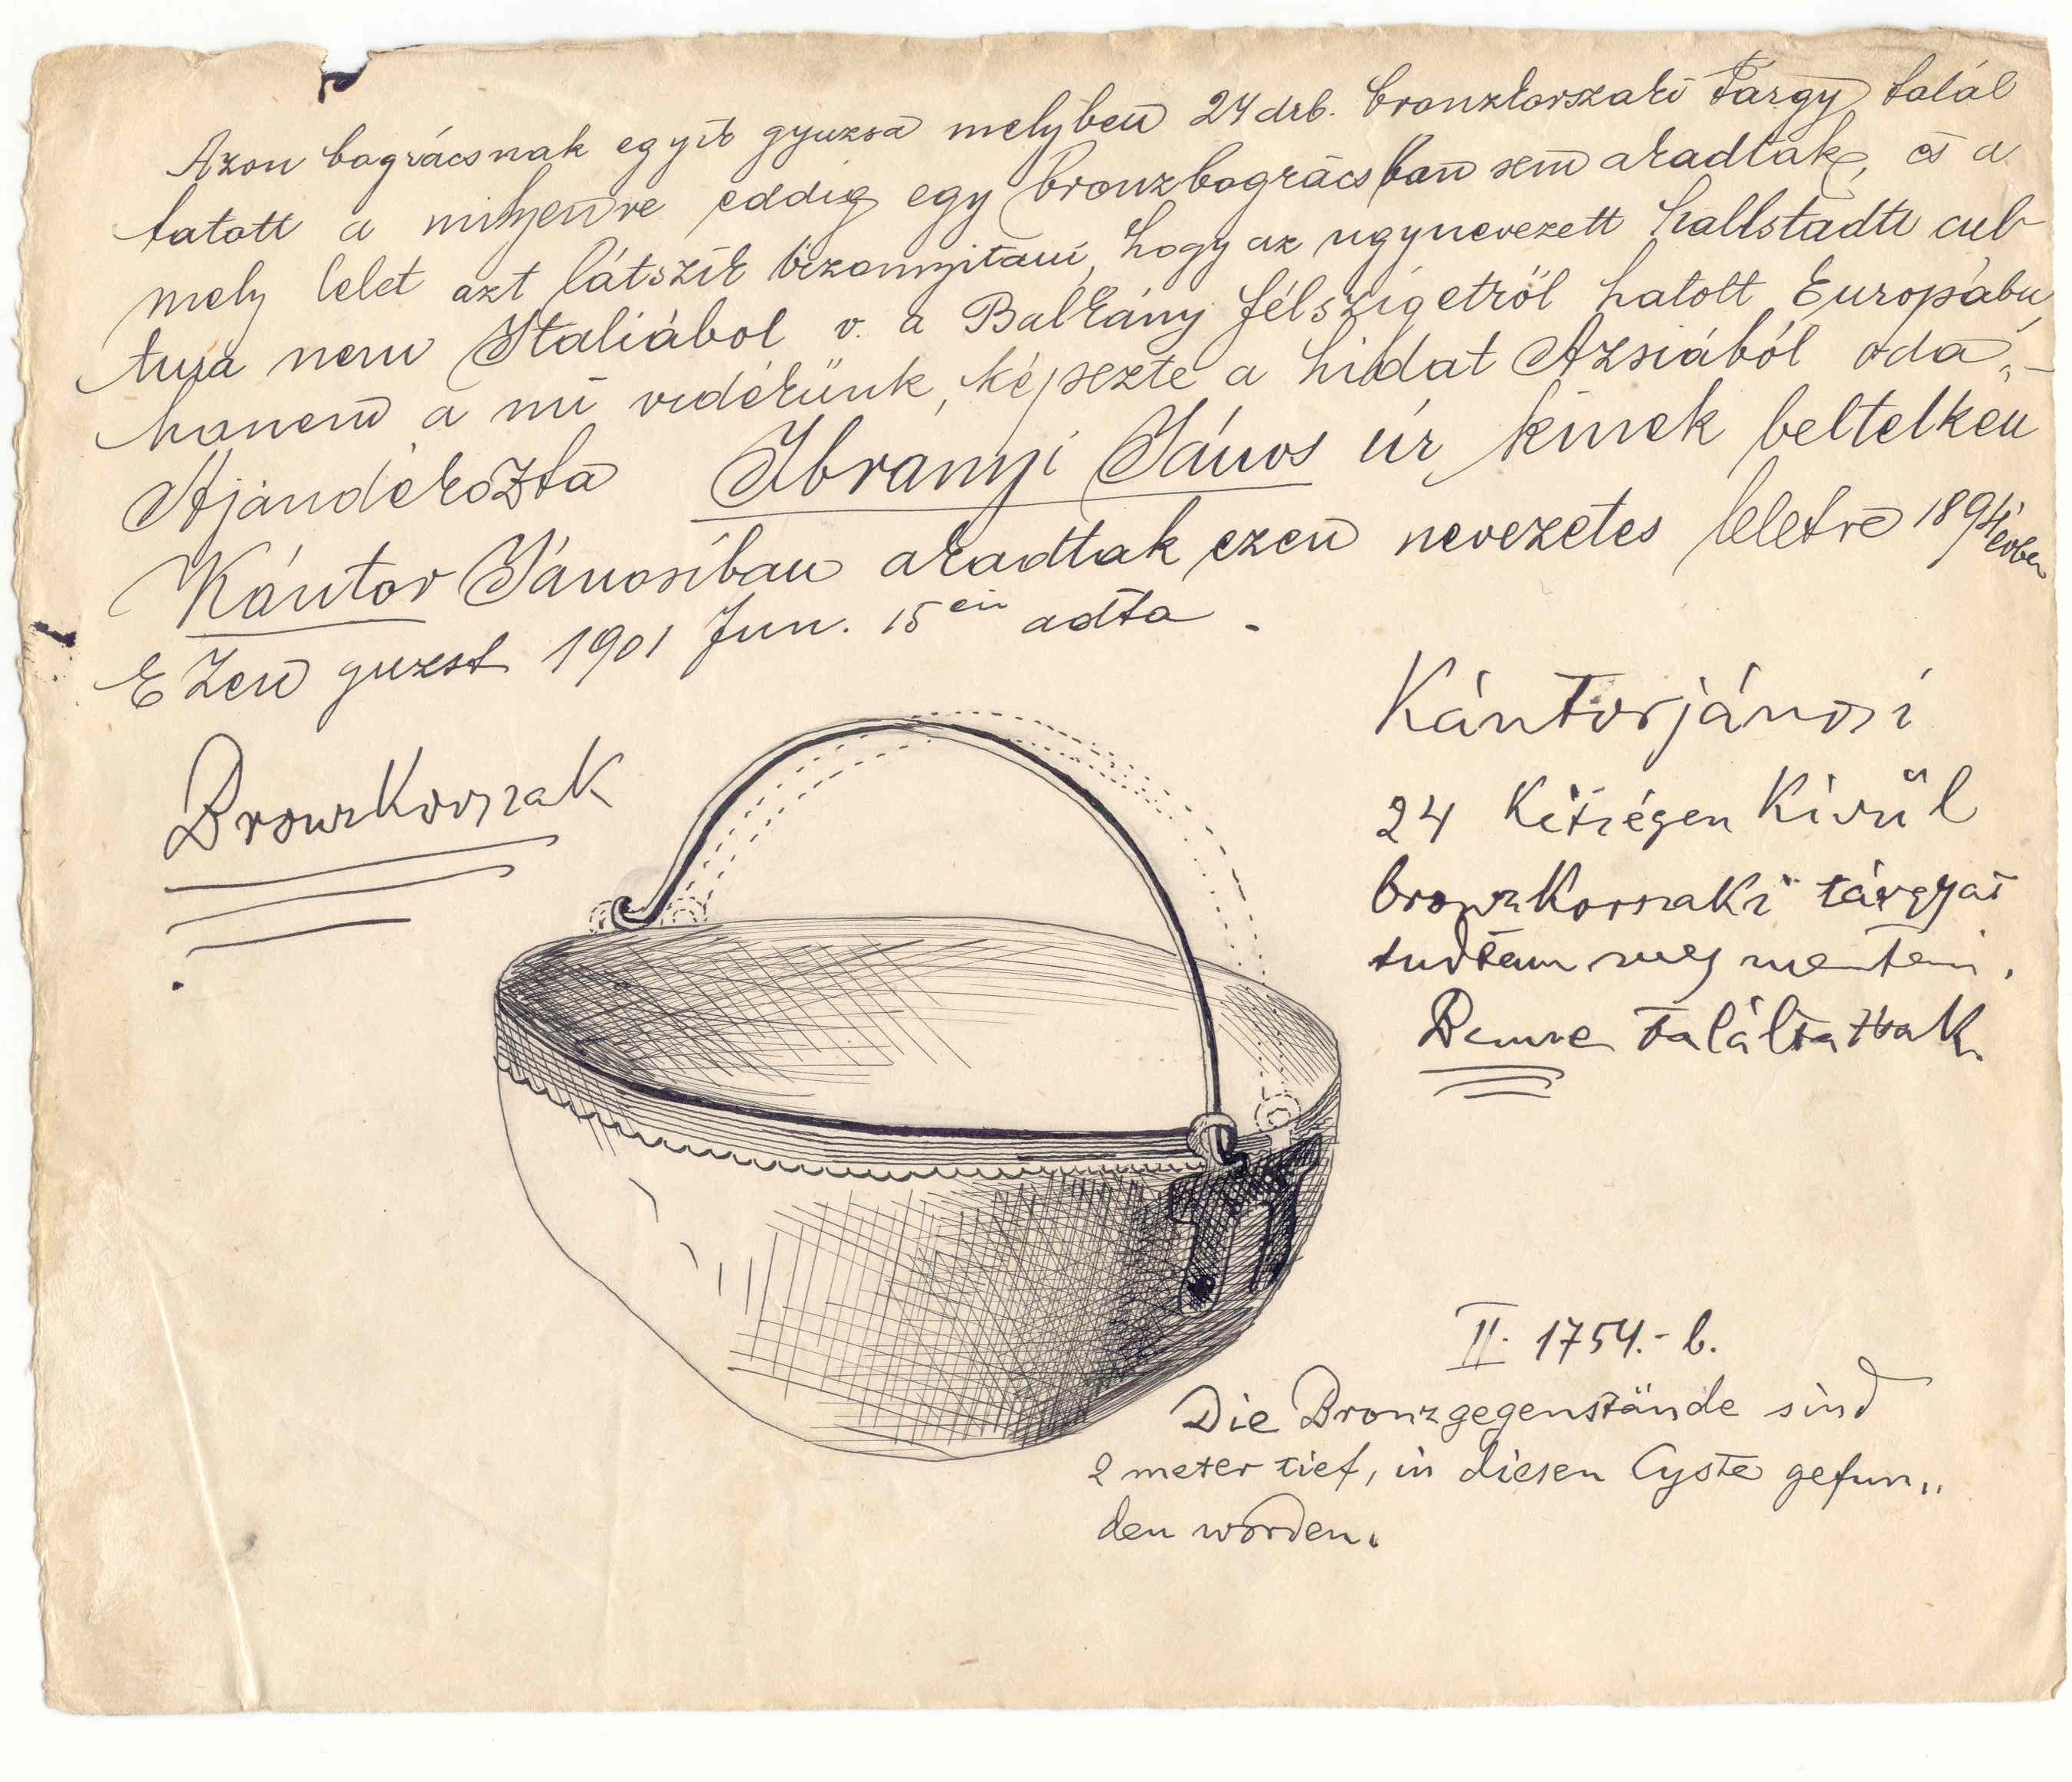 Azon bográcsnak egyik gyuzsa melyben 24 drb. bronzkorszaki Tárgy talál
tatott a milyenre eddig egy bronzbogrács ban sem akadtak, és a
mely lelet azt látszik bizonyitani, hogy az ugynevezett hallstadti cul
tura nem Italiábol v. a Balkány félszigetről hatott Europába,
hanem a mi vidékünk, képezte a hidat Azsiából oda,-
Ajándékozta Ibranyi János úr kinek beltelken
Kántor Jánosiban akadtak ezen nevezetes leletre 1894 évben
EZen guzst 1901 Jun. 15 en adta.
Kántorjánosi
Bronzkorszak
24 Kétségen Kivűl
bronzkorszaki tárgyat
tudtam meg menteni.
Benne találtattak
II. 1754.- b.
Die Bronzgegenstände sind
2 meter tief, in diesen Cyste gefun„
den worden.